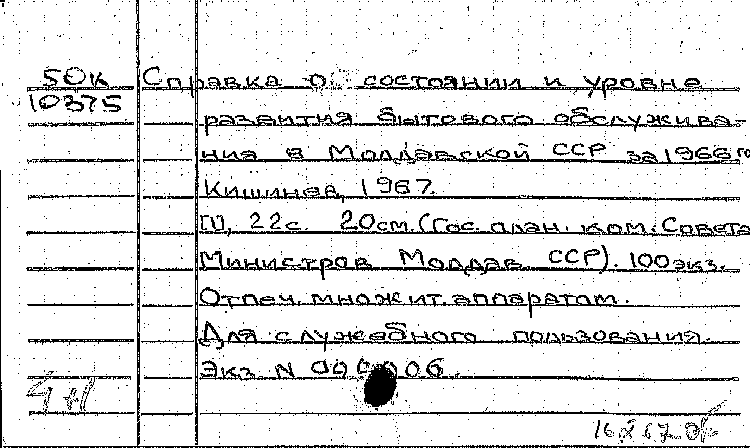 50к Справка о состоянии и уровне
10375
развития бытового обслужива-
ния в Молдавской ССР за 1966 го
Кишинев, 1967.
[1], 22с. 20см. (Гос. план. ком. Совета
Министров Молдав. ССР). 100экз.
Отпеч. множит. аппаратом.
Для служебного пользования.
Экз. N 000006.